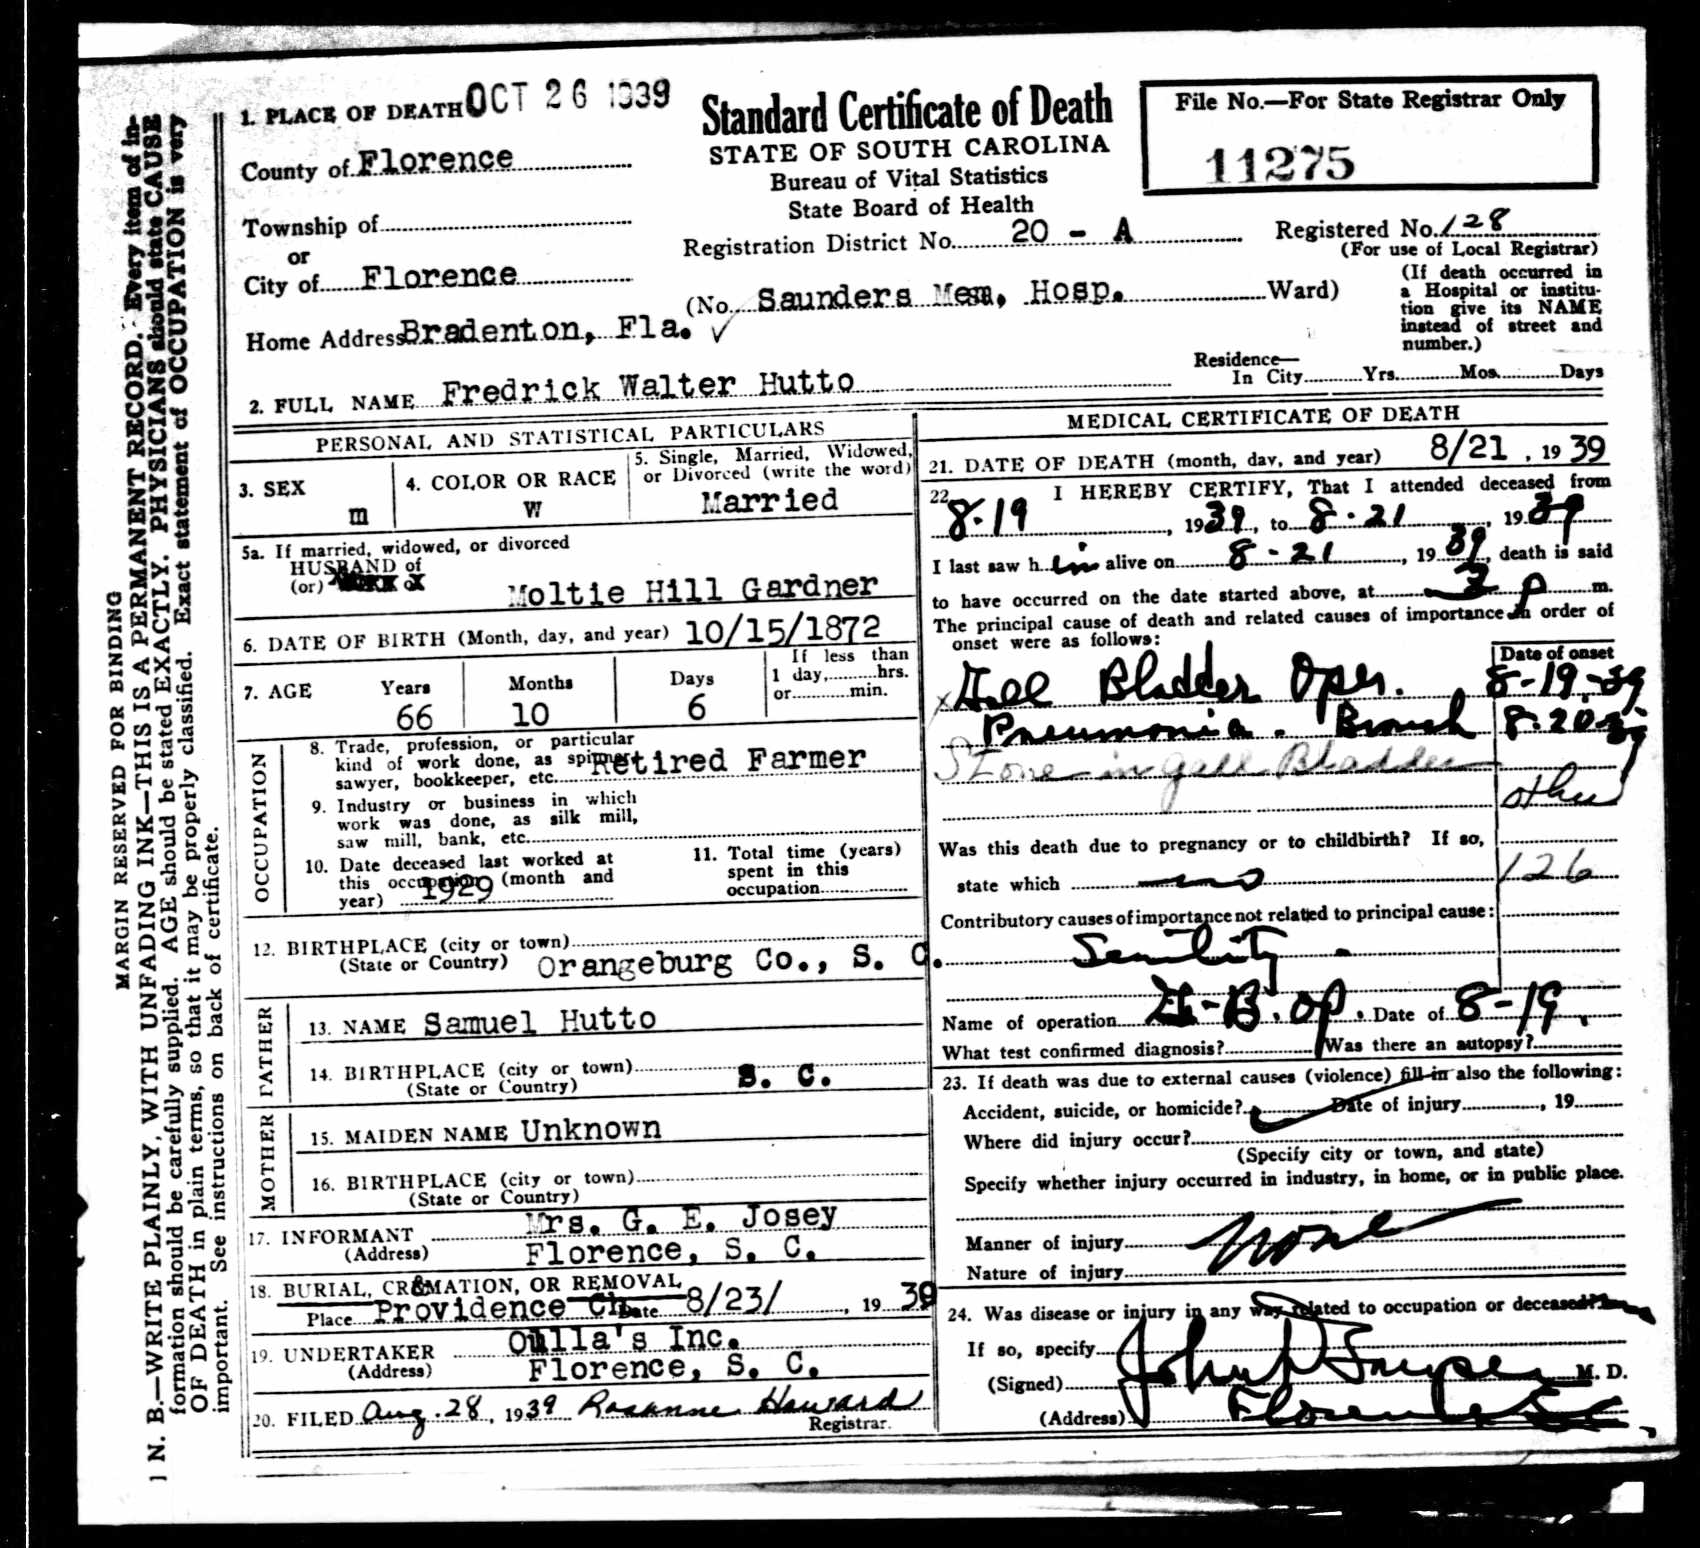 1. PLACE OF DEATH OCT 26 1939
Standard Certificate of Death
STATE OF SOUTH CAROLINA
Bureau of Vital Statistics
State Board of Health
File No.—For State Registrar Only
11275
County of Florence
Township of
or
City of Florence
Registration District No. 20 - A
Registered No. 128
(For use of Local Registrar)
(No. Saunders Mem. Hosp. Ward)
(If death occurred in
a Hospital or institu-
tion give its NAME
instead of street and
number.)
Home Address Bradenton, Fla. ✓
Residence—
In City Yrs. Mos. Days
2. FULL NAME Fredrick Walter Hutto
PERSONAL AND STATISTICAL PARTICULARS
3. SEX
m
4. COLOR OR RACE
W
5. Single, Married, Widowed,
or Divorced (write the word)
Married
5a. If married, widowed, or divorced
HUSBAND of
(or)
Moltie Hill Gardner
6. DATE OF BIRTH (Month, day, and year) 10/15/1872
7. AGE
Years
66
Months
10
Days
6
If less than
1 day, hrs.
or min.
OCCUPATION
8. Trade, profession, or particular
kind of work done, as spinner,
sawyer, bookkeeper, etc. Retired Farmer
9. Industry or business in which
work was done, as silk mill,
saw mill, bank, etc.
10. Date deceased last worked at
this occupation (month and
year) 1929
11. Total time (years)
spent in this
occupation
12. BIRTHPLACE (city or town)
(State or Country) Orangeburg Co., S. C.
FATHER
13. NAME Samuel Hutto
14. BIRTHPLACE (city or town)
(State or Country) S. C.
MOTHER
15. MAIDEN NAME Unknown
16. BIRTHPLACE (city or town)
(State or Country)
17. INFORMANT Mrs. G. E. Josey
(Address) Florence, S. C.
18. BURIAL, CREMATION, OR REMOVAL
Place Providence Ch. Date 8/23/, 1939
19. UNDERTAKER Oulla's Inc.
(Address) Florence, S. C.
20. FILED Aug. 28, 1939 Rosanne Howard
Registrar.
MEDICAL CERTIFICATE OF DEATH
21. DATE OF DEATH (month, day, and year) 8/21, 1939
22. I HEREBY CERTIFY, That I attended deceased from
8-19, 1939, to 8-21, 1939
I last saw him alive on 8-21, 1939, death is said
to have occurred on the date started above, at 3 p m.
The principal cause of death and related causes of importance in order of
onset were as follows:
Date of onset
x Gall Bladder Oper. 8-19-39
Pneumonia. Bronch 8-20-39
Stone in gall Bladder
other
Was this death due to pregnancy or to childbirth? If so,
state which no
126
Contributory causes of importance not related to principal cause:
Senility
Name of operation G-B. op. Date of 8-19.
What test confirmed diagnosis? Was there an autopsy?
23. If death was due to external causes (violence) fill in also the following:
Accident, suicide, or homicide? Date of injury , 19
Where did injury occur?
(Specify city or town, and state)
Specify whether injury occurred in industry, in home, or in public place.
Manner of injury none
Nature of injury
24. Was disease or injury in any way related to occupation or deceased?
If so, specify
(Signed) John M. D.
(Address) Florence S.C.
MARGIN RESERVED FOR BINDING
N. B.—WRITE PLAINLY, WITH UNFADING INK—THIS IS A PERMANENT RECORD. Every item of in-
formation should be carefully supplied. AGE should be stated EXACTLY. PHYSICIANS should state CAUSE
OF DEATH in plain terms, so that it may be properly classified. Exact statement of OCCUPATION is very
important. See instructions on back of certificate.